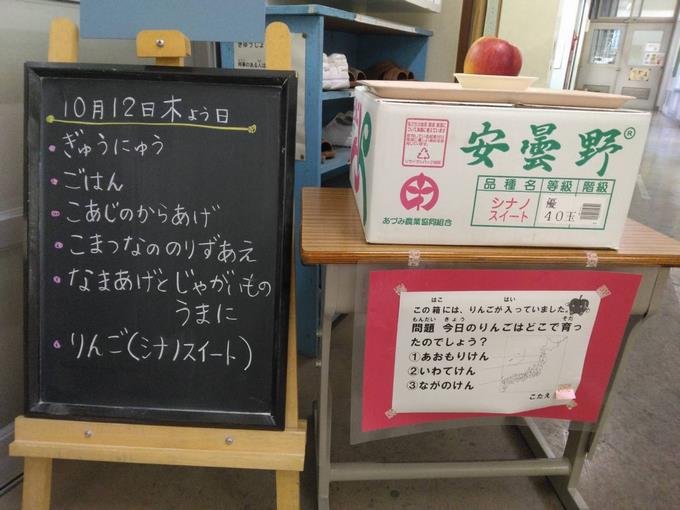 10月12日木よう日
・ぎゅうにゅう
・ごはん
・こあじのからあげ
・こまつなののりずあえ
・なまあげとじゃがいもの
うまに
・りんご(シナノスイート)
安曇野®
あづみ農業協同組合
品種名 等級 階級
シナノスイート 優 40玉
この箱には、りんごが入っていました。
はこ はい
問題 今日のりんごはどこで育っ
もんだい きょう そだ
たのでしょう?
①あおもりけん
②いわてけん
③ながのけん
こたえ